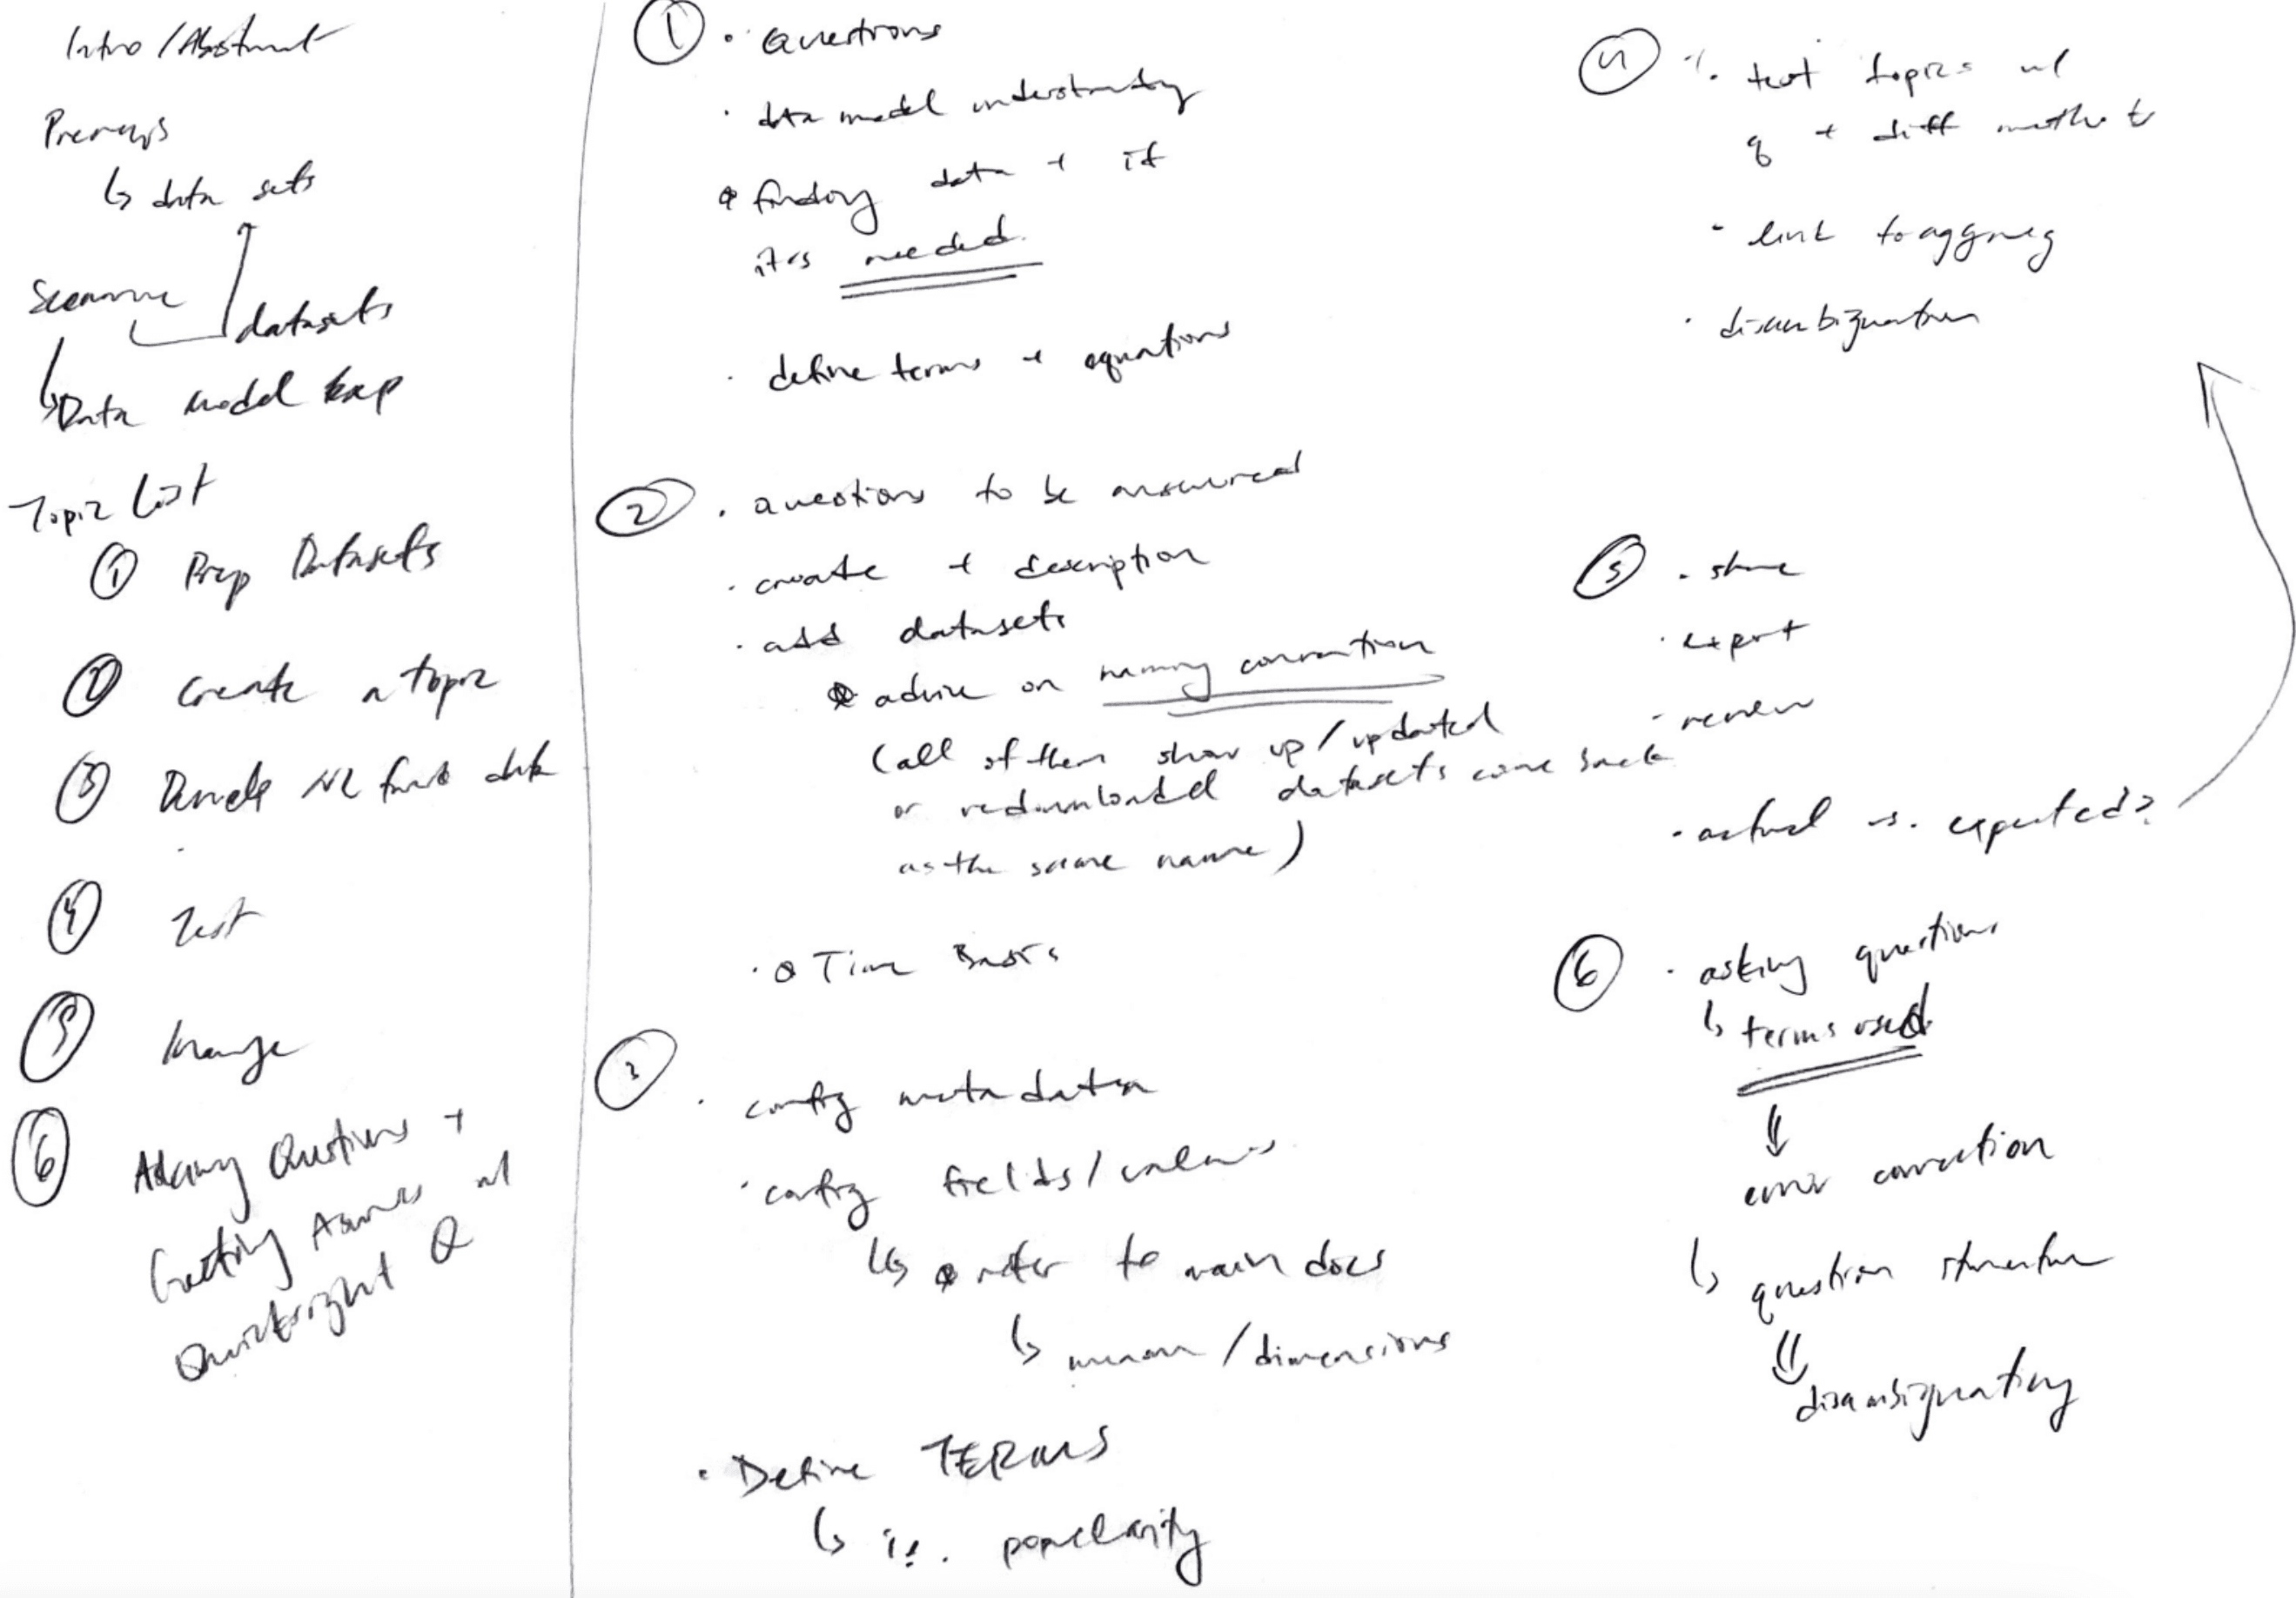 Intro/Abstract
Prereqs
↳ data sets
Scenario
datasets
↳ Data model exp
Topic List
① Prep Datasets
② Create a topic
③ NL data
④ Test
⑤ Manage
⑥ Asking Questions +
Getting Answers w/
Quicksight Q
① · Questions
· data model understanding
· finding data + if
it's needed.
· define terms + equations
② · questions to be answered
· create + description
· add datasets
advice on naming convention
(all of them show up/updated
or redownloaded datasets come back
as the same name)
· Time Basis
③
· config metadata
· config fields/values
↳ refer to main docs
↳ /dimensions
· Define TERMS
↳ i.e. popularity
④ · test topics w/
q + diff methods
· link to aggreg
· disambiguation
⑤ · share
· export
· review
· actual vs. expected?
⑥ · asking questions
↳ terms used
⇓
error correction
↳ question structure
⇓
disambiguating